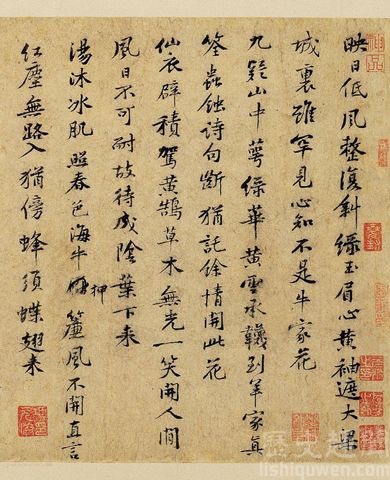 映日低風整復斜綠玉眉心黃袖遮大梁
城裏雖罕見心知不是牛家花
九疑山中萼綠華黃雲承韈到羊家真
筌蟲蝕詩句斷猶託餘情開此花
仙衣襞積駕黃鵠草木無光一笑開人間
風日不可耐故待成陰葉下來
湯沐冰肌照春色海牛押簾風不開直言
紅塵無路入猶傍蜂須蝶翅來
神品
歷史趣聞
lishiquwen.com